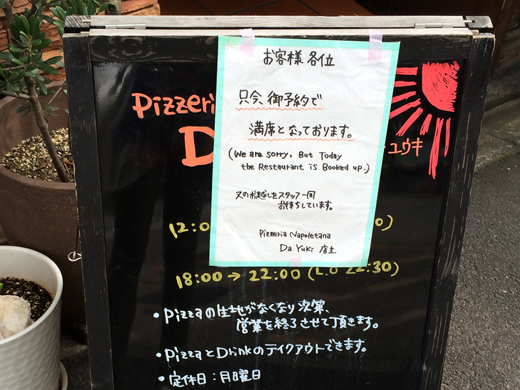 お客様 各位
只今、御予約で
満席となっております。
(We are sorry, But Today
the Restaurant is Booked up.)
又のお越しをスタッフ一同
お待ちしています。
Pizzeria Napoletana
Da Yuki 店主
Pizzeria
D
ユウキ
12:0
0)
18:00 → 22:00 (L.O 22:30)
・Pizzaの生地がなくなり次第、
営業を終了させて頂きます。
・PizzaとDrinkのテイクアウトできます。
・定休日:月曜日